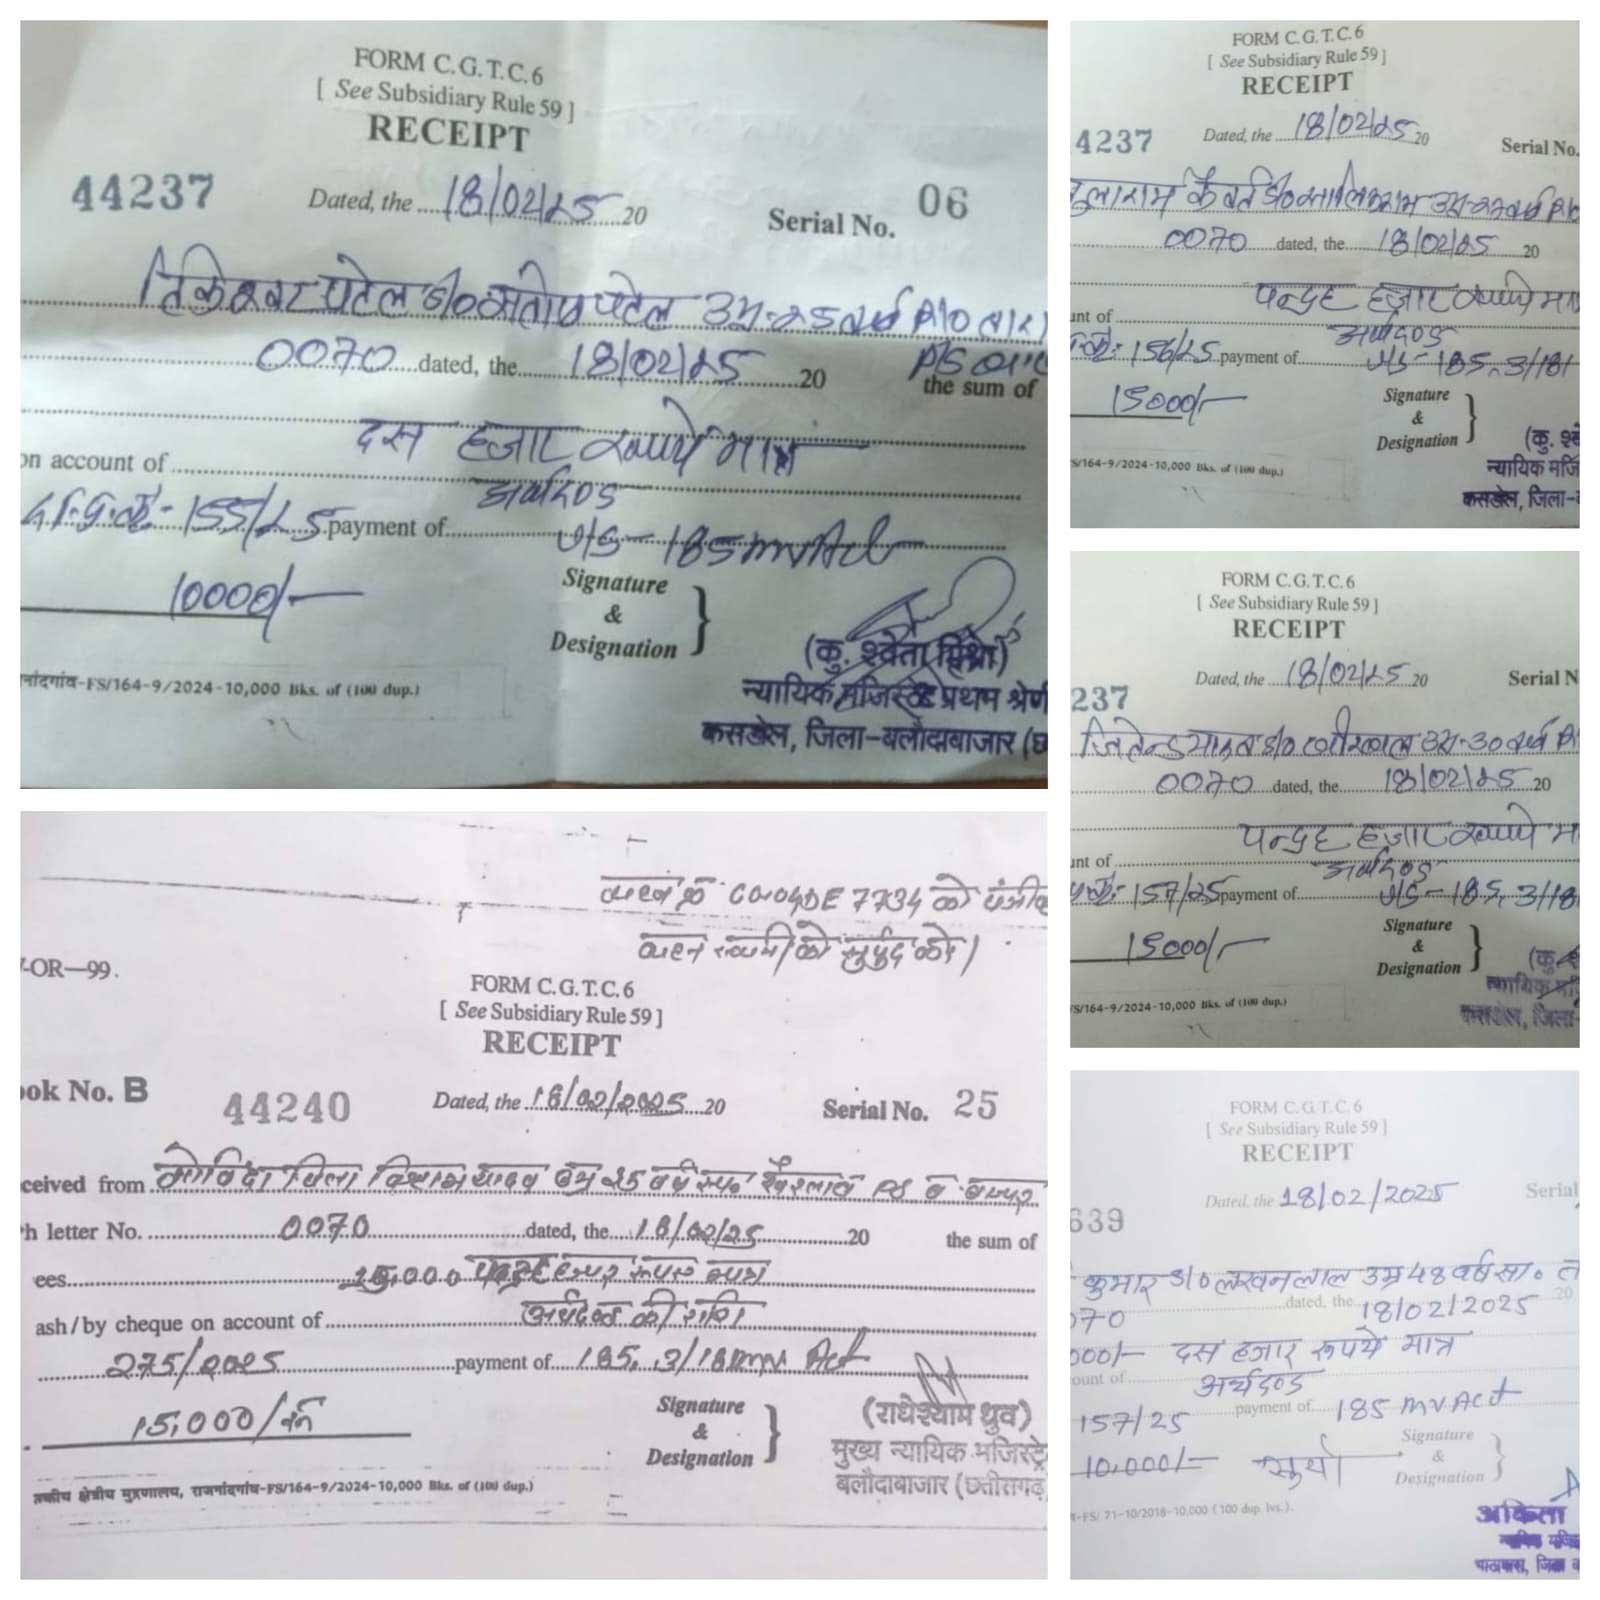 FORM C.G.T.C.6
[ See Subsidiary Rule 59 ]
RECEIPT
44237 Dated, the 18/02/25 20 Serial No. 06
पटेल S/O संतोष पटेल उम्र-25 वर्ष R/O
0070 dated, the 18/02/25 20 P/S
the sum of
दस हजार रूपये मात्र
on account of अर्थदण्ड
155/25 payment of U/S-185 mv Act
10000/-
Signature
&
Designation
(कु. श्वेता मिश्रा)
न्यायिक मजिस्ट्रेट प्रथम श्रेणी
कसडोल, जिला-बलौदाबाजार (छ
नांदगांव-FS/164-9/2024-10,000 Bks. of (100 dup.)
FORM C.G.T.C.6
[ See Subsidiary Rule 59 ]
RECEIPT
4237 Dated, the 18/02/25 20 Serial No.
कैवर्त S/O उम्र-27 वर्ष R/O
0070 dated, the 18/02/25 20
पन्द्रह हजार रूपये मा
unt of अर्थदण्ड
156/25 payment of U/S-185, 3/181
15000/-
Signature
&
Designation
(कु. श्वे
न्यायिक मजि
कसडोल, जिला-ब
S/164-9/2024-10,000 Bks. of (100 dup.)
FORM C.G.T.C.6
[ See Subsidiary Rule 59 ]
RECEIPT
237 Dated, the 18/02/25 20 Serial N
जितेन्द्र यादव S/O उम्र-30 वर्ष R/
0070 dated, the 18/02/25 20
पन्द्रह हजार रूपये म
unt of अर्थदण्ड
157/25 payment of U/S-185, 3/18
15000/-
Signature
&
Designation
(कु.
न्यायिक मजि
कसडोल, जिला-
S/164-9/2024-10,000 Bks. of (100 dup.)
वाहन क्र CG04DE 7734 को
वाहन स्वामी को सुपुर्द करे।
-OR—99.
FORM C.G.T.C.6
[ See Subsidiary Rule 59 ]
RECEIPT
ook No. B 44240 Dated, the 18/02/2025 20 Serial No. 25
ceived from गोविंदा पिता विश्राम यादव उम्र 25 वर्ष
h letter No. 0070 dated, the 18/02/25 20 the sum of
ees 15,000 पन्द्रह हजार रूपए मात्र
ash/by cheque on account of अर्थदण्ड की राशि
275/2025 payment of 185, 3/181 mv Act
15,000/
Signature
&
Designation
(राधेश्याम ध्रुव)
मुख्य न्यायिक मजिस्ट्रे
बलौदाबाजार (छत्तीसगढ़
क्षेत्रीय मुद्रणालय, राजनांदगांव-FS/164-9/2024-10,000 Bks. of (100 dup.)
FORM C.G.T.C.6
[ See Subsidiary Rule 59 ]
RECEIPT
639 Dated, the 18/02/2025 Serial
कुमार S/O लखनलाल उम्र 48 वर्ष सा०
070 dated, the 18/02/2025 20
000/- दस हजार रूपये मात्र
ount of अर्थदण्ड
157/25 payment of 185 mv Act
10,000/-
Signature
&
Designation
-FS/ 71-10/2018-10,000 (100 dup. lvs.).
अंकिता